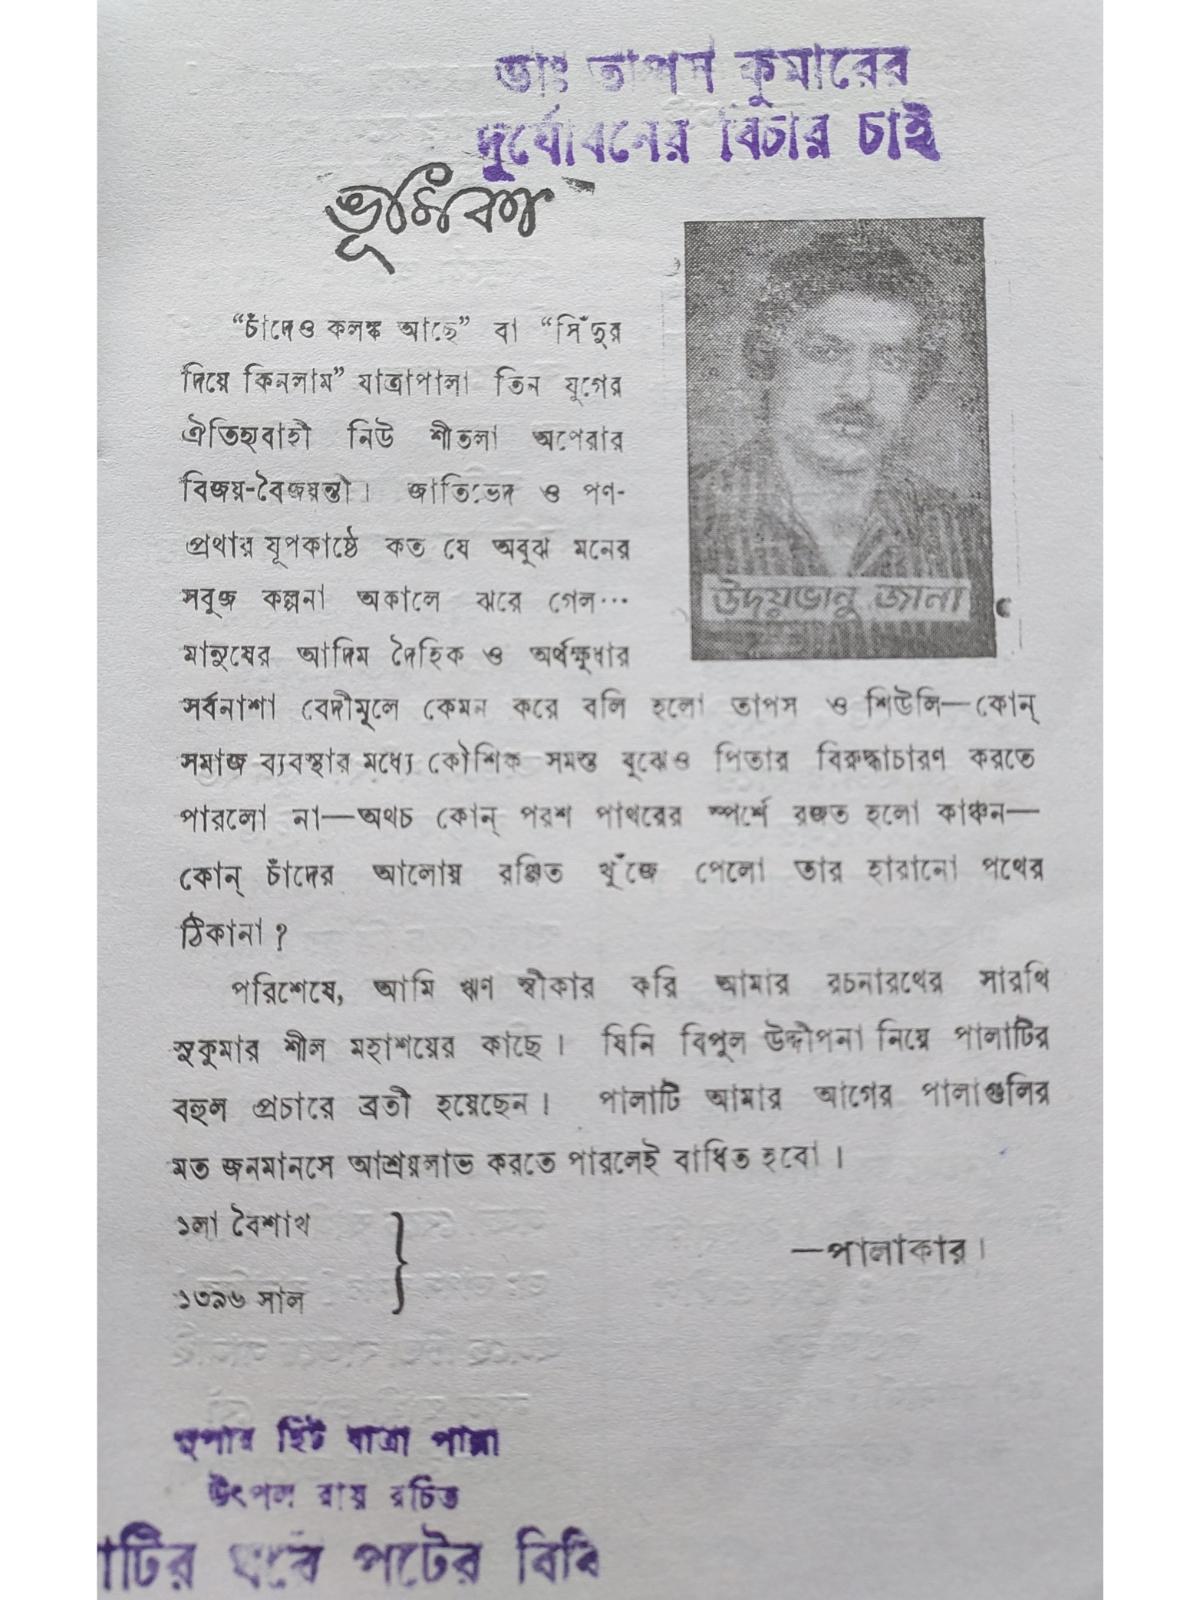 ডাঃ তাপস কুমারের
দুর্যোধনের বিচার চাই
ভূমিকা
“চাঁদেও কলঙ্ক আছে” বা “সিঁদুর
দিয়ে কিনলাম” যাত্রাপালা তিন যুগের
ঐতিহ্যবাহী নিউ শীতলা অপেরার
বিজয়-বৈজয়ন্তী। জাতিভেদ ও পণ-
প্রথার যূপকাষ্ঠে কত যে অবুঝ মনের
সবুজ কল্পনা অকালে ঝরে গেল...
মানুষের আদিম দৈহিক ও অর্থক্ষুধার
উদয়ভানু জানা
সর্বনাশা বেদীমূলে কেমন করে বলি হলো তাপস ও শিউলি—কোন্
সমাজ ব্যবস্থার মধ্যে কৌশিক সমস্ত বুঝেও পিতার বিরুদ্ধাচারণ করতে
পারলো না—অথচ কোন্ পরশ পাথরের স্পর্শে রজত হলো কাঞ্চন—
কোন্ চাঁদের আলোয় রঞ্জিত খুঁজে পেলো তার হারানো পথের
ঠিকানা?
পরিশেষে, আমি ঋণ স্বীকার করি আমার রচনারথের সারথি
সুকুমার শীল মহাশয়ের কাছে। যিনি বিপুল উদ্দীপনা নিয়ে পালাটির
বহুল প্রচারে ব্রতী হয়েছেন। পালাটি আমার আগের পালাগুলির
মত জনমানসে আশ্রয়লাভ করতে পারলেই বাধিত হবো।
১লা বৈশাখ
১৩৯৬ সাল
—পালাকার।
সুপার হিট যাত্রা পালা
উৎপল রায় রচিত
াটির ঘরে পটের বিবি